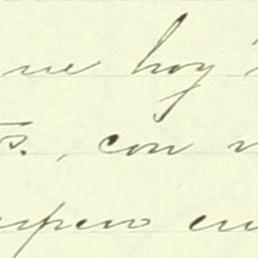 ue hoy
s., con
espero en